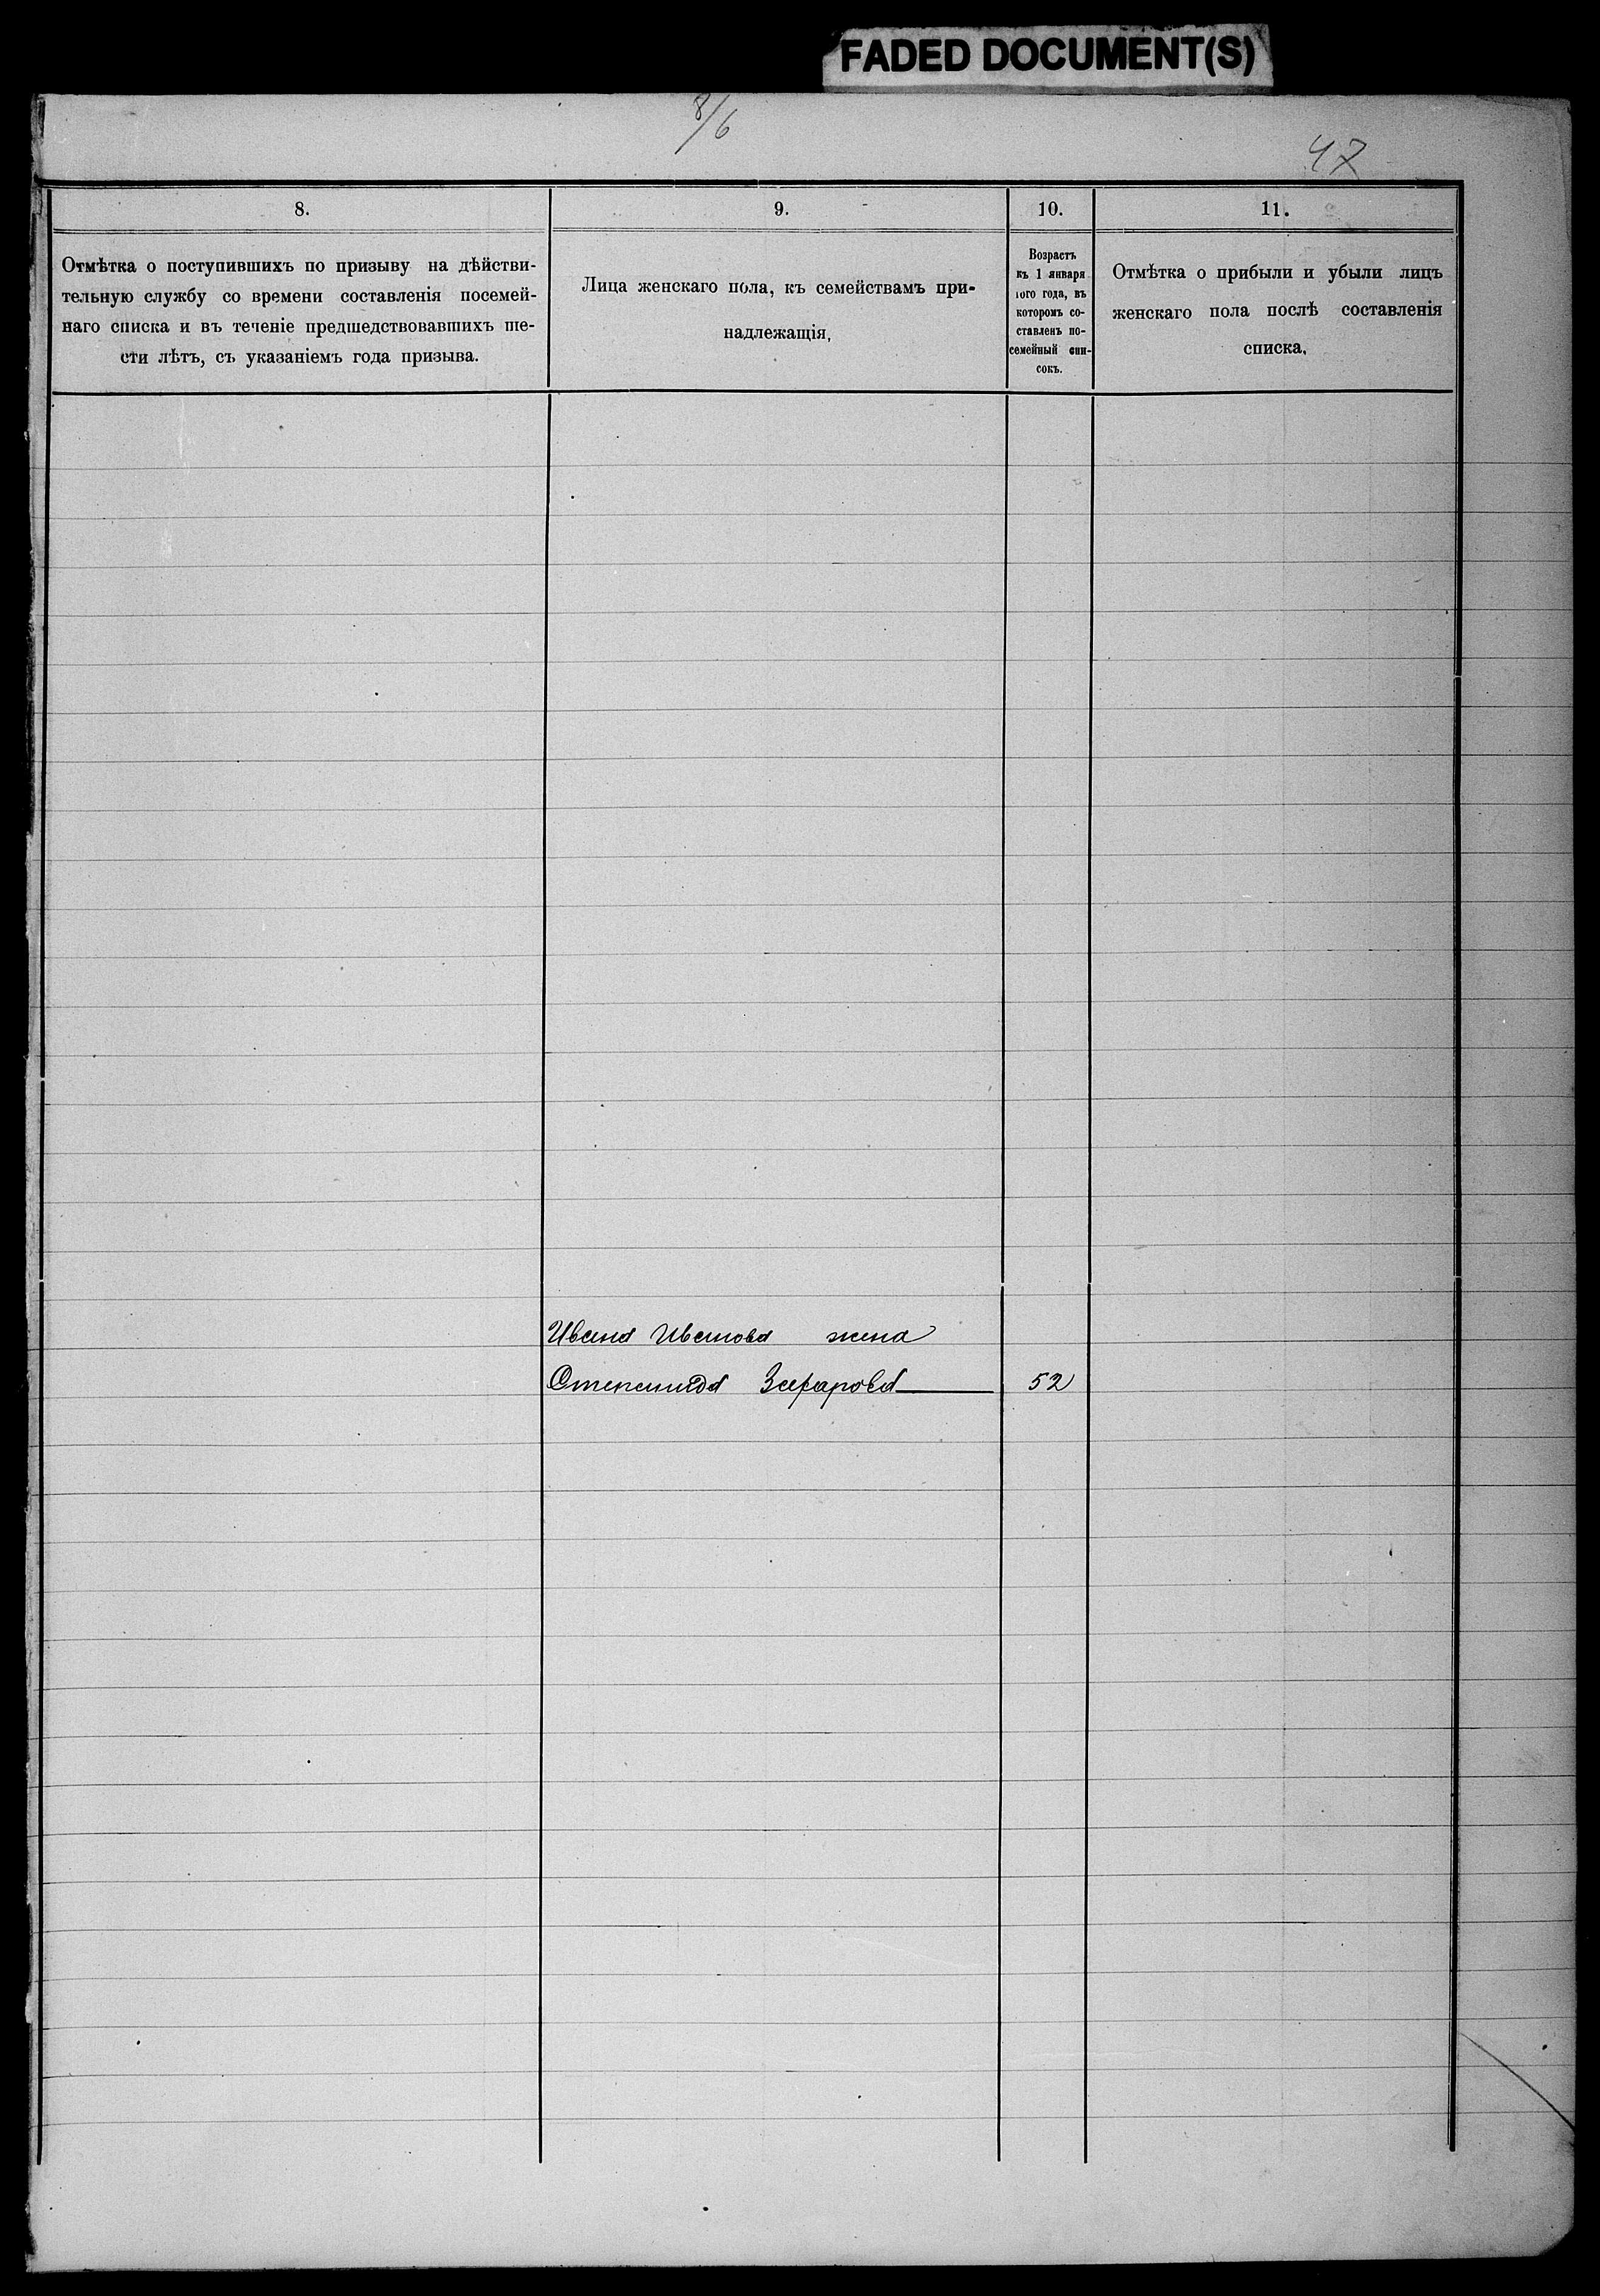 FADED DOCUMENT(S)
8/6
47
8.
9.
10.
11.
Отмѣтка о поступившихъ по призыву на дѣйстви-
тельную службу со времени составленія посемей-
наго списка и въ теченіе предшедствовавшихъ ше-
сти лѣтъ, съ указаніемъ года призыва.
Лица женскаго пола, къ семействамъ при-
надлежащія,
Возрастъ
къ 1 января
того года, въ
которомъ со-
ставленъ по-
семейный спи-
сокъ.
Отмѣтка о прибыли и убыли лицъ
женскаго пола послѣ составленія
списка,
Ивана Иванова жена
Степанида Захарова
52